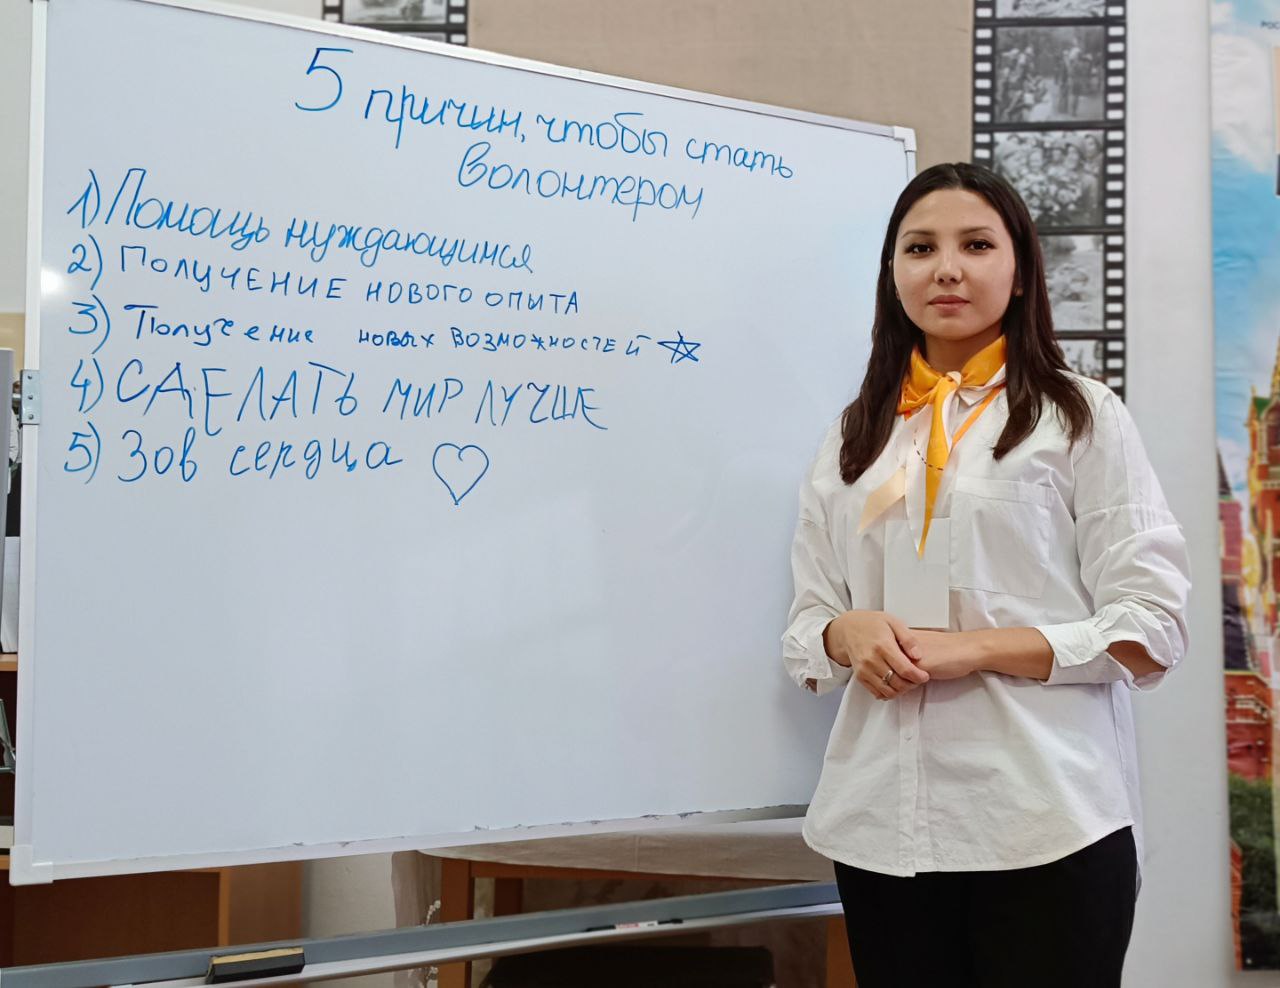 5 причин, чтобы стать
волонтером
1) Помощь нуждающимся
2) ПОЛУЧЕНИЕ НОВОГО ОПЫТА
3) Получение новых возможностей
4) СДЕЛАТЬ МИР ЛУЧШЕ
5) Зов сердца